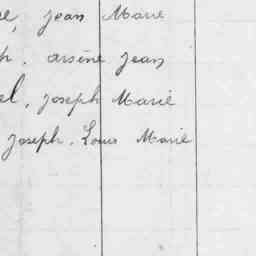 jean Marie
arsène jean
joseph Marie
joseph. Louis Marie